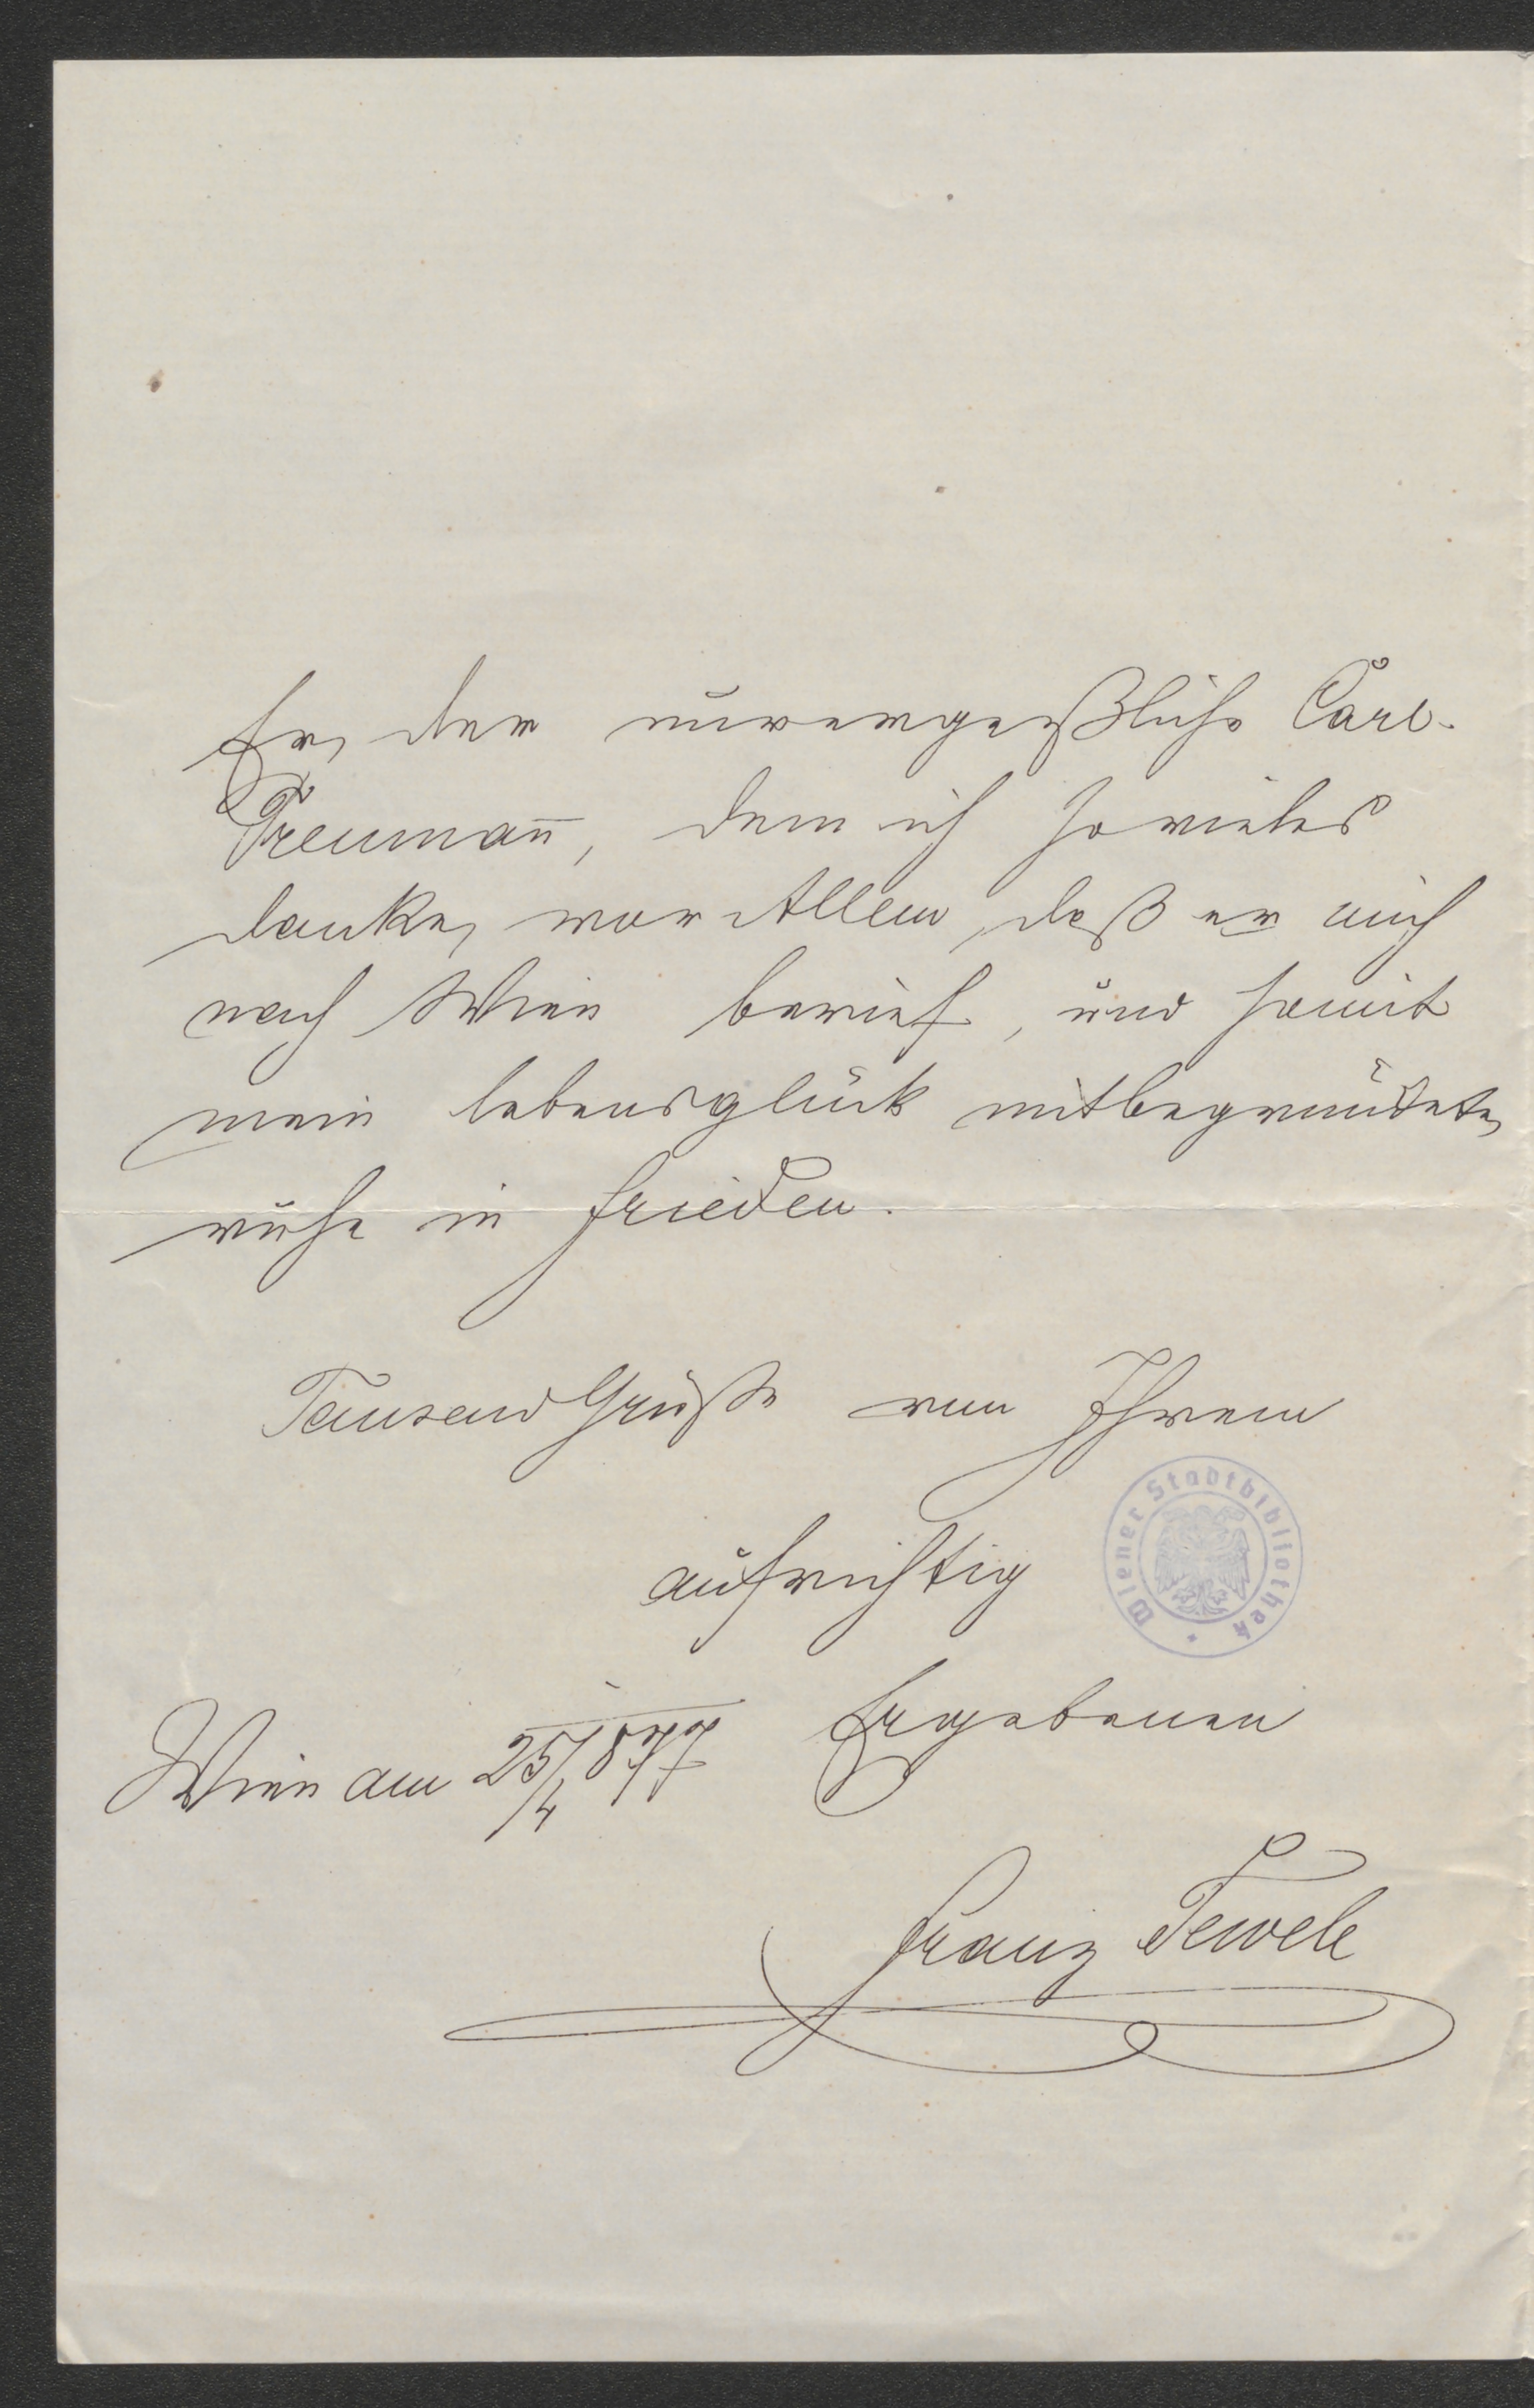 Er, der unvergeßliche Carl
Treumañ, dem ich so vieles
danke, vor Allem, daß er mich
nach Wien berief, und somit
mein Lebensglück mitbegründete,
ruhe in Frieden.
Tausend Grüße von Ihrem
aufrichtig
Wiener Stadtbibliothek
Ergebenen
Wien am 25/4 1877
Franz Tewele